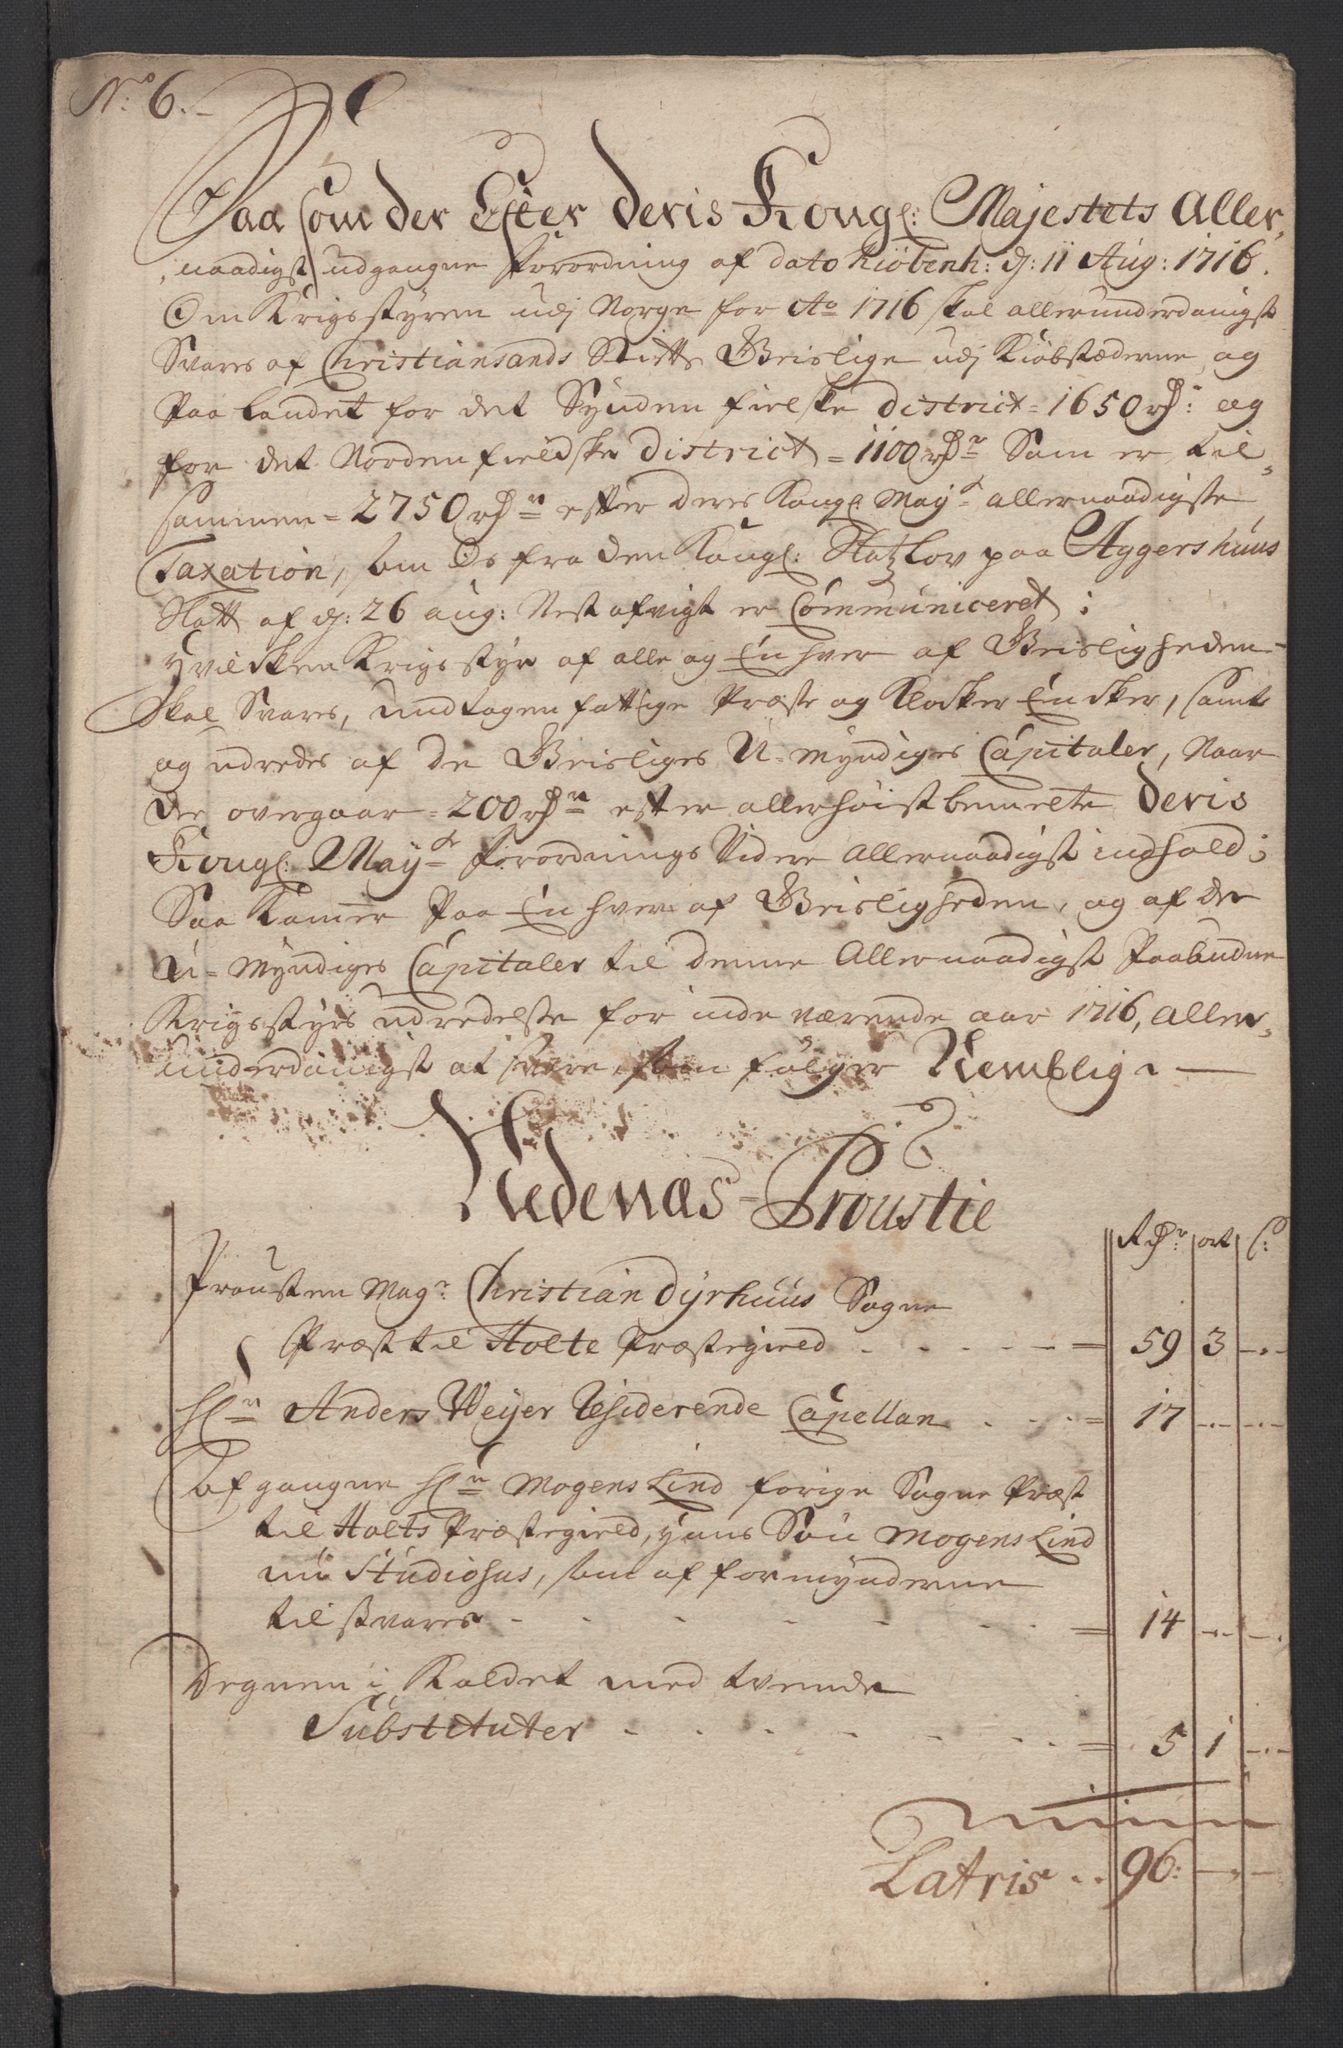 No: 6.
Saa som der Efter Deris Kongl: Majestets Aller,,
naadigst udgangne Forordning af dato Kiøbenh: d: 11 Aug: 1716.
Om Krigsstyren udj Norge for Ao 1716 skal allerunderdanigst
Svares af Christiansands Stifts Geislige udj Kiøbstæderne og
Paa Landet for det Synden fielske District = 1650 rdr: og
for det Nordenfieldske District = 1100 rdr Som er til,,
sammen = 2750 rdr efter Deres Kongl Mayts allernaadigste
Taxation, som Os fra den Kongl: Slotzlov paa Aggershuus
Slott af d: 26 aug: Nest afvigt er Communiceret;
Hvilcken Krigsstyr af alle og En hver af Geisligheden
Skal Svares, undtagen fattige Præste og Klocker Encker, samt
og udredes af de Geisliges U-Myndiges Capitaler, Naar
De overgaar = 200 rdr efter allerhøistbemelte Deris
Kongl. Mayts Forordnings Videre Allernaadigst indhold;
Saa Kamer Paa En hver af Geisligheden, og af de
U-Myndiges Capitaler til denne Allernaadigst Paabudne
Krigsstyrs udredelse for inde værende aar 1716, aller,,
underdanigst at svare, som følger Nemblig -
Nedenæs-Proustie
Rdr ort s:
Prousten Magr Christian Dyrhuus Sogne
Præst til Holte Præstegield = 59 3 -
Hr Anders Weyer Residerende Capellan = 17 - -
Afgangne Hr Mogens Lind forige Sogne Præst
til Holts Præstegield, hans Søn Mogens Lind
nu Studiosus, som af formynderne
til svares = 14 - -
Degnen i Kaldet med tvende
Substituter = 5 1 -
Latris .. 96: - -